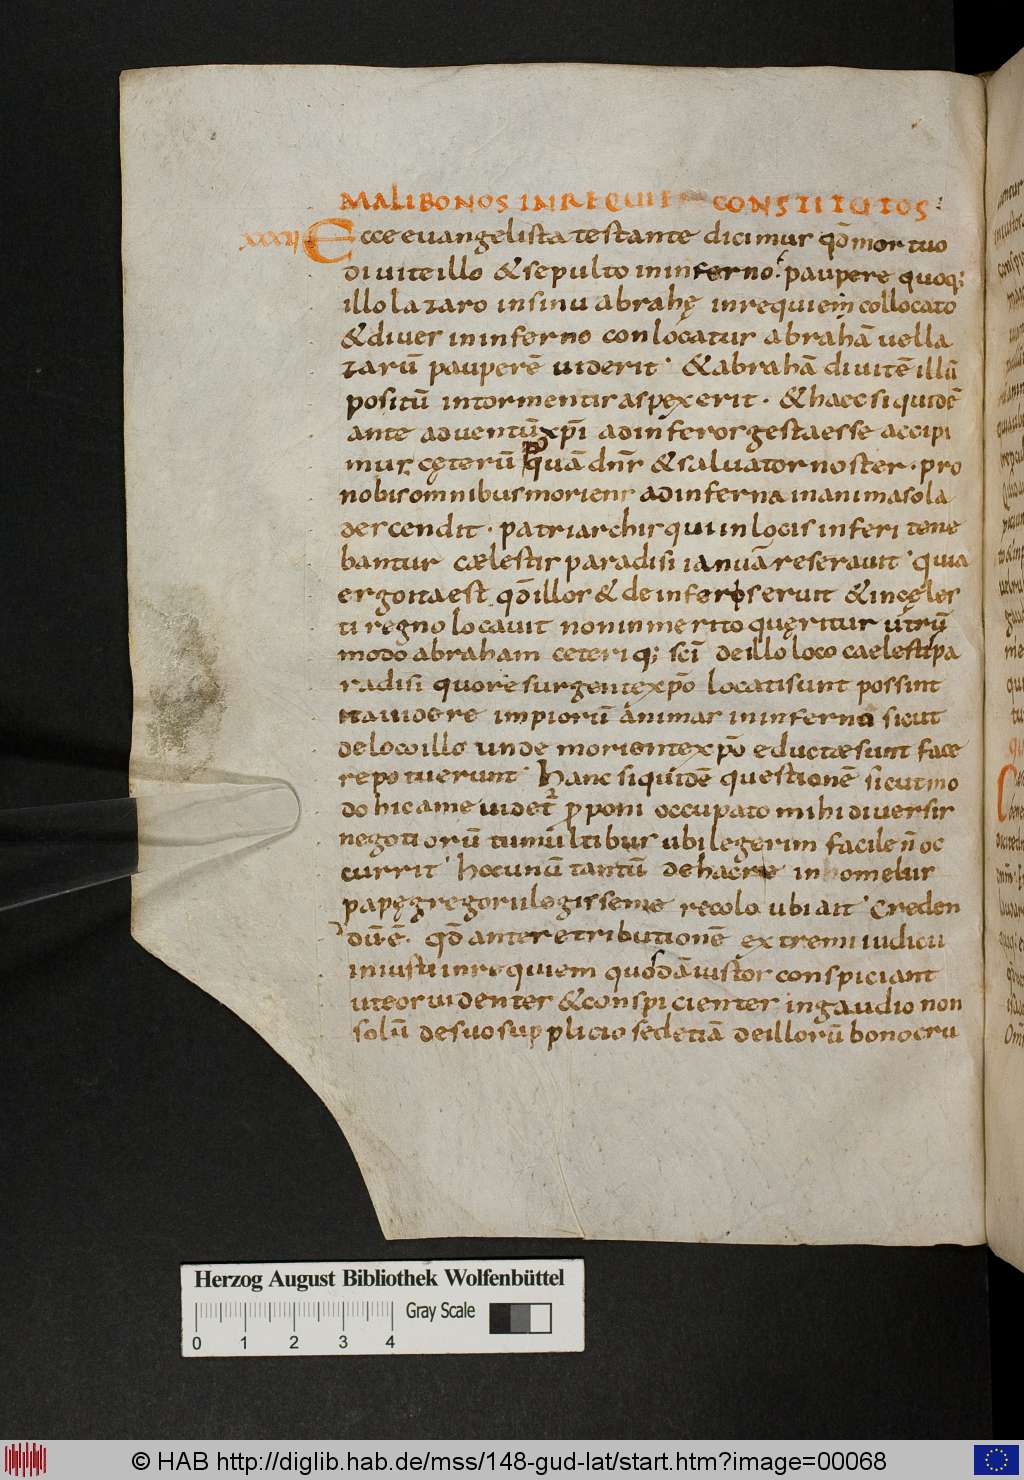 MALI BONOS IN REQUIE CONSTITUTOS
xxxii Ecce evangelista testante dicimus qđ mortuo
divite illo & sepulto in inferno. paupere quoq;
illo lazaro in sinu abrahę in requiem collocato
& dives in inferno conlocatur abrahā vel la
zarū pauperē viderit & abrahā divitē illū
positū in tormentis aspexerit. & haec siquidē
ante adventū xp̄i ad inferos gesta esse accipi
mus. cęterū dn̄s & salvator noster. pro
nobis omnibus moriens ad inferna in anima sola
descendit. patriarchis qui in locis inferi tene
bantur cælestis paradisi ianuā reseravit quia
ergo ita est qđ illos & de inferos eruit & in cęles
ti regno locavit non inmerito quęritur utrū
modo abraham ceteriq; sc̄i de illo loco caelesti pa
radisi quo resurgente xp̄o locati sunt possint
ita videre impiorū animas in inferno sicut
de loco illo unde moriente xp̄o eductæ sunt face
re potuerunt. Hanc siquidē questionē sicut mo
do hic a me videt̄ proponi occupato mihi diversis
negotiorū tumultibus ubi legerim facile n̄ oc
currit. hoc unū tantū de hac re in homeliis
papę gregorii legisse me recolo ubi ait Creden
dū. ē. qđ ante retributionē extremi iudicii
iniusti in requiem quosdā iustos conspiciant
ut eos videntes & conspicientes in gaudio non
solū de suo supplicio sed etiā de illorū bono cru
Herzog August Bibliothek Wolfenbüttel
Gray Scale
0 1 2 3 4
© HAB http://diglib.hab.de/mss/148-gud-lat/start.htm?image=00068